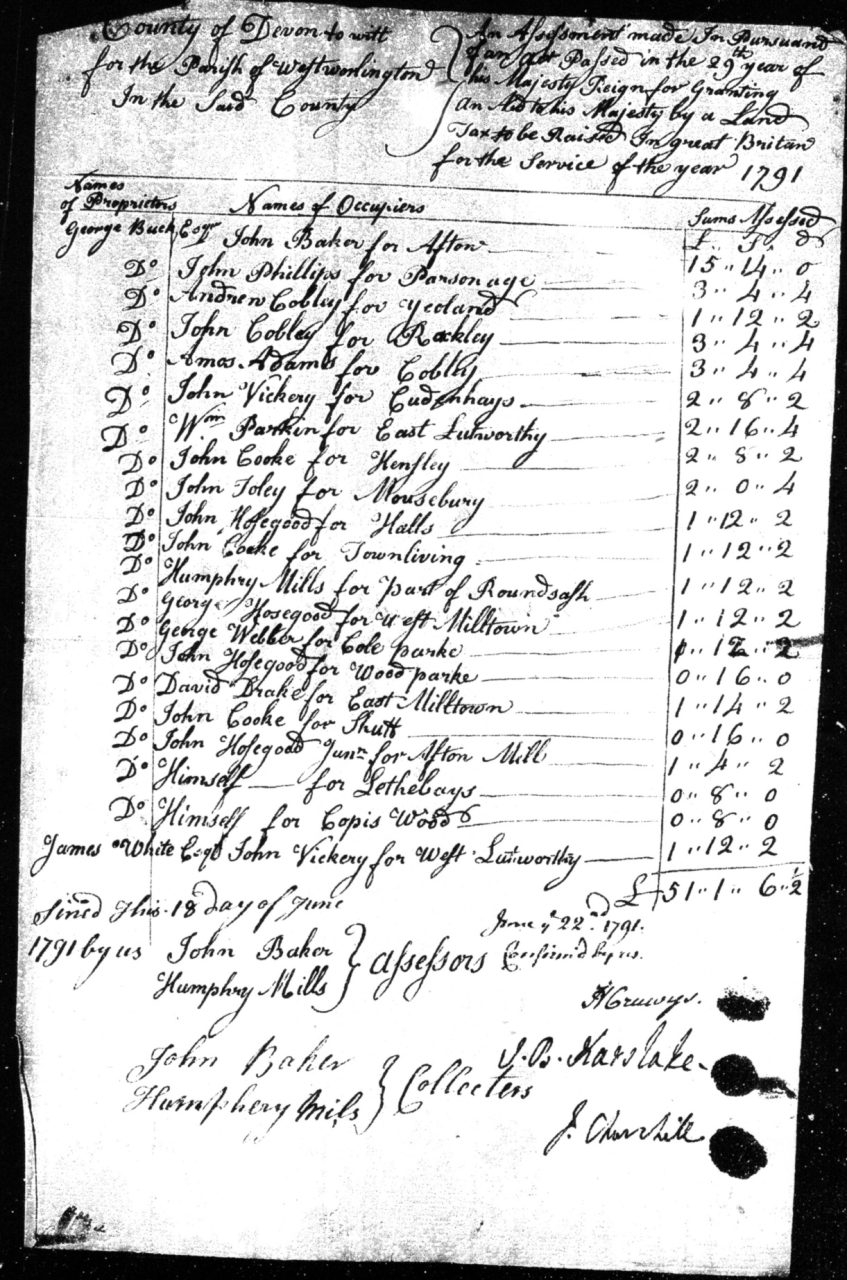 County of Devon to witt
for the Parish of Westworlington
In the Said County
An Assessment made In Pursuand
of an act Passed in the 29th year of
his Majesty Reign for Granting
an Aid to his Majesty by a Land
Tax to be Raised In great Britan
for the Service of the year 1791
Names of Proprietors Names of Occupiers Sums Assessed
£ S d
George Buck Esqr John Baker for Afton 15 " 14 " 0
Do John Phillips for Parsonage 3 " 4 " 4
Do Andrew Cobley for Yeoland 1 " 12 " 2
Do John Cobley for Rackley 3 " 4 " 4
Do Amos Adams for Cobley 3 " 4 " 4
Do John Vickery for Cudenhays 2 " 8 " 2
Do Wm Parkin for East Lutworthy 2 " 16 " 4
Do John Cooke for Hensley 2 " 8 " 2
Do John Foley for Mousebury 2 " 0 " 4
Do John Hosegood for Halls 1 " 12 " 2
Do John Cooke for Townliving 1 " 12 " 2
Do Humphry Mills for part of Roundsash 1 " 12 " 2
Do George Hosegood for West Milltown 1 " 12 " 2
Do George Webber for Cole parke 12 " 2
Do John Hosegood for Wood parke 0 " 16 " 0
Do David Drake for East Milltown 1 " 14 " 2
Do John Cooke for Shutt 0 " 16 " 0
Do John Hosegood Junr for Afton Mill 1 " 4 " 2
Do Himself for Lethebays 0 " 8 " 0
Do Himself for Copis Wood 0 " 8 " 0
James White Esqr John Vickery for West Lutworthy 1 " 12 " 2
£ 51 " 1 " 6 " ½
Sined This 18 day of June
1791 by us John Baker
Humphry Mills } assessors
June ye 22nd 1791.
Confirmd by us.
H Cruwys.
John Baker
Humphery Mils } Collecters
J. B. Karslake
J. Churchill